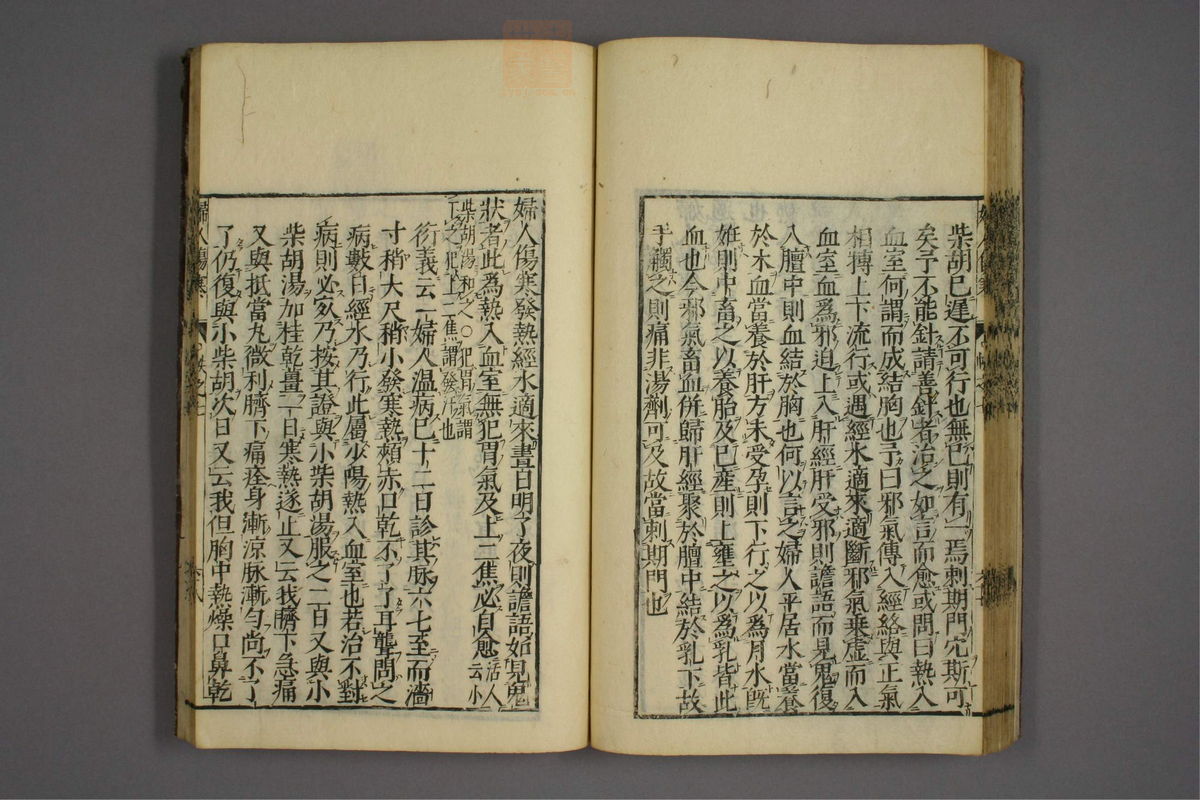 柴胡已遲不可行也無已則有一焉刺期門穴斯可
矣予不能針請善針者治之如言而愈或問曰熱入
血室何謂而成結胸也予曰邪氣傳入經絡與正氣
相搏上下流行或遇經水適來適斷邪氣乗虛而入
血室血爲邪迫上入肝經肝受邪則譫語而見鬼復
入膻中則血結於胸也何以言之婦人平居水當養
於木血當養於肝方未受孕則下行之以爲月水既
妊則中畜之以養胎及已產則上壅之以爲乳皆此
血也今邪氣畜血併歸肝經聚於膻中結於乳下故
手觸之則痛非湯劑可及故當刺期門也
婦人傷寒發熱經水適來晝日明了夜則譫語如見鬼
狀者此爲熱入血室無犯胃氣及上二焦必自愈活人云小
柴胡湯和之○犯胃氣謂
下之犯上二焦謂發汗也
衍義云一婦人温病已十二日診其脉六七至而濇
寸稍大尺稍小發寒熱頰赤口乾不了了耳聾問之
病數日經水乃行此屬少陽熱入血室也若治不對
病則必死乃按其證與小柴胡湯服之二日又與小
柴胡湯加桂乾薑一日寒熱遂止又云我臍下急痛
又與抵當丸微利臍下痛痊身漸涼脉漸勻尚不了
了仍復與小柴胡次日又云我但胸中熱燥口鼻乾
婦人傷寒